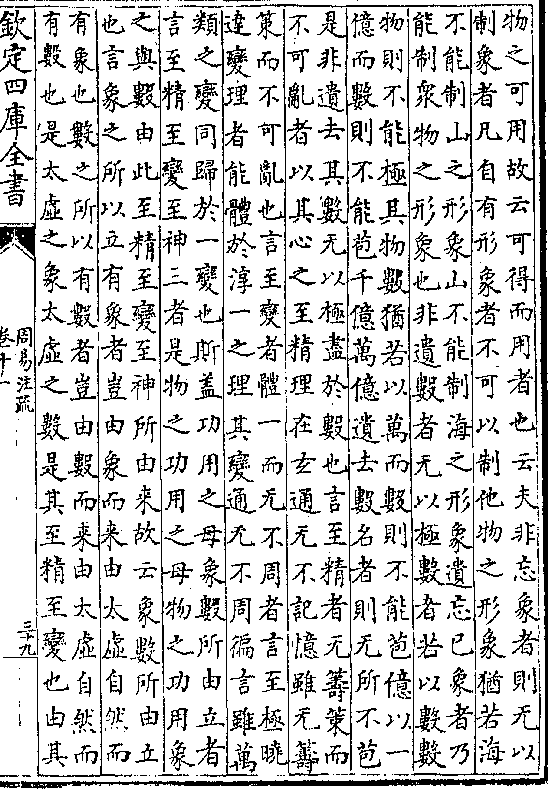 物之可用故云可得而用者也云夫非忘象者則无以
制象者凡自有形象者不可以制他物之形象猶若海
不能制山之形象山不能制海之形象遺忘已象者乃
能制衆物之形象也非遺數者无以極數者若以數數
物則不能極其物數猶若以萬而數則不能苞億以一
億而數則不能苞千億萬億遺去數名者則无所不苞
是非遺去其數无以極盡於數也言至精者无籌策而
不可亂者以其心之至精理在玄通无不記憶雖无籌
策而不可亂也言至變者體一而无不周者言至極曉
達變理者能體於淳一之理其變通无不周徧言雖萬
類之變同歸於一變也斯蓋功用之母象數所由立者
言至精至變至神三者是物之功用之母物之功用象
之與數由此至精至變至神所由來故云象數所由立
也言象之所以立有象者豈由象而來由太虛自然而
有象也數之所以有數者豈由數而來由太虛自然而
有數也是太虛之象太虛之數是其至精至變也由其
欽定四庫全書
周易注疏
卷十一
三十九